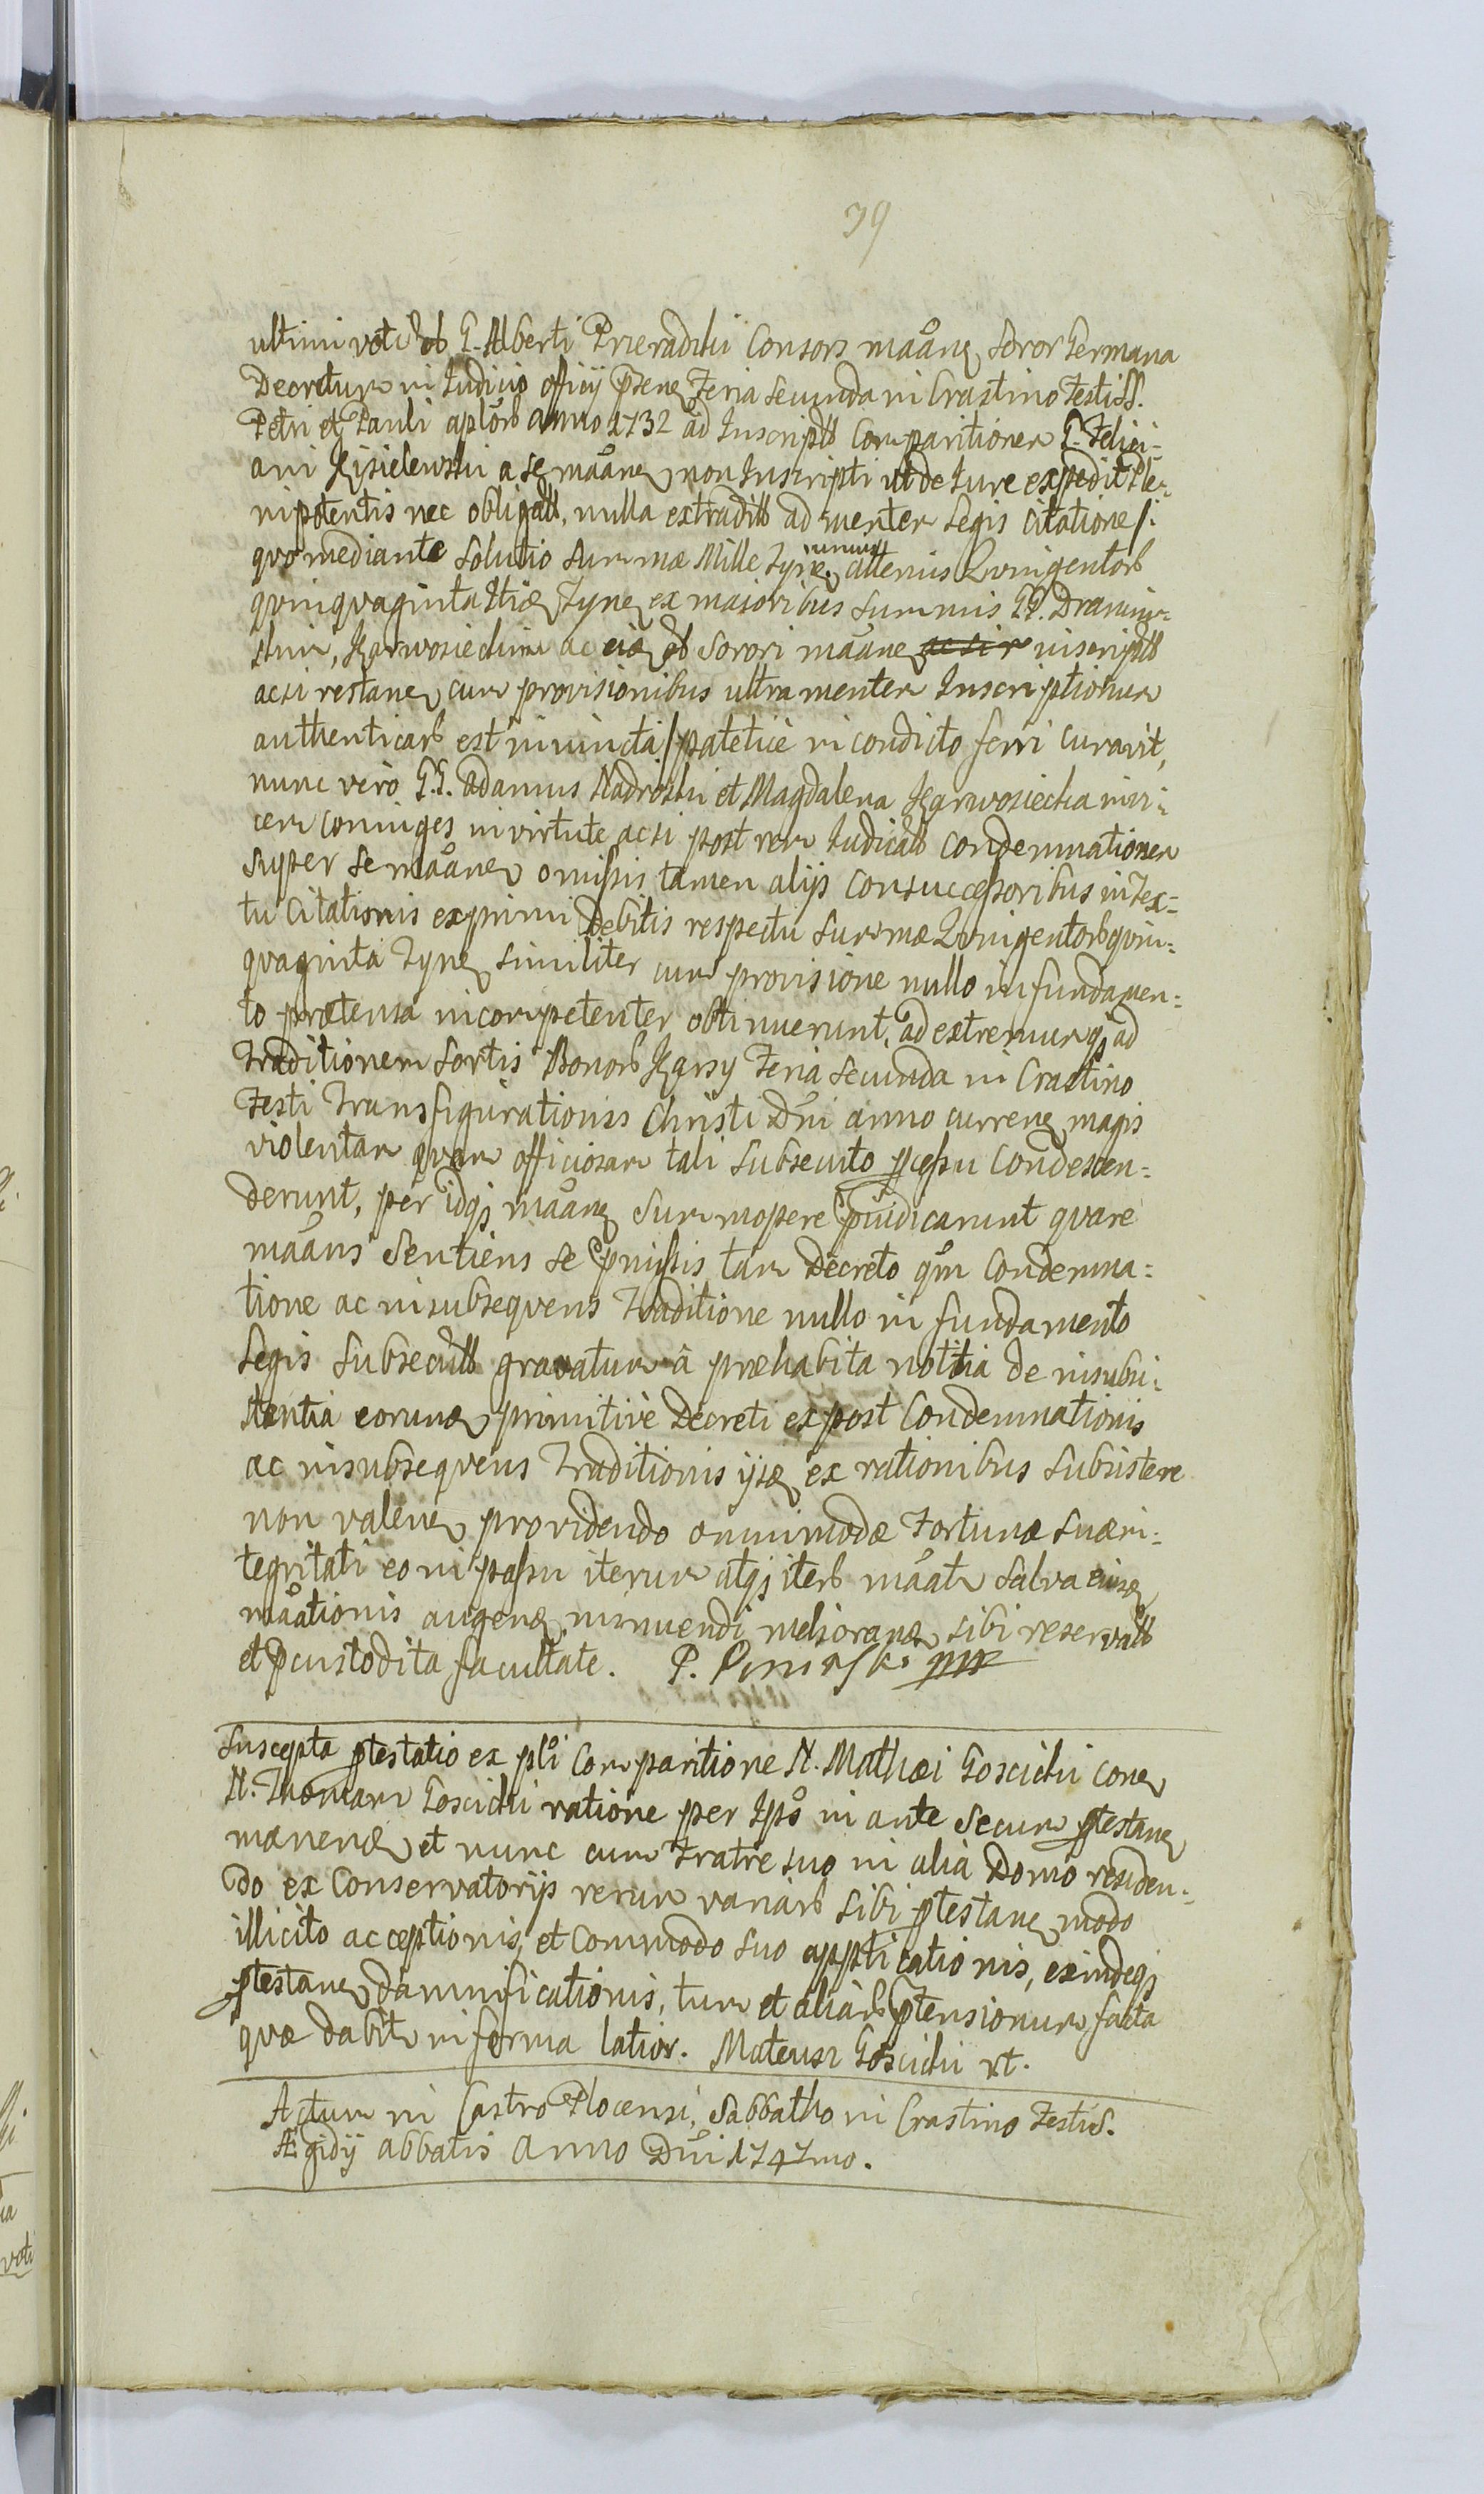 39
ultimi voti ob G. Alberti Przeradzki Consors mãane Soror Germana
Decretum in Judicio officij pñsene Feria Secunda in Crastino Festi SS.
Petri et Pauli aplõrb anno 1732 ad Inscriptã Comparitionem G. Felici-
ani Kisielewski a se mãane non Inscripti ut de Jure expedit Ple-
nipotentis nec obligatã, nulla extraditã ad mentem Legis Citatione /:
quo mediante Solutio Summæ Mille Tyne. alterius Quingentorb
quinquaginta Tyne ex maioribus Summis GG.
Karwosieckim ac eiæ ob Sorori mãane ac si inscriptã
ac si restane cum provisionibus ultra mentem Inscriptionum
authenticarb est iniuncta / pateticè in condicto ferri curavit,
nunc verò G.G. Adamus Nadrozki et Magdalena Karwosiecka invi-
cem coniuges in virtute ac si post rem Judicatã Condemnationem
super se mãane omissis tamen alijs Consuccessoribus in Tex=
tu Citationis exprimi Debitis respectu Summæ Quingentorb quin=
quaginta Tyne similiter cum provisione nullo in fundamen=
to prætensa incompetenter obtinuerunt, ad extremumq; ad
Traditionem Sortis Bonorb Karsy Feria Secunda in Crastino
Festi Transfigurationis Christi Dñi anno currene magis
violentam quam officiosam tali subsecuto pcessu Condescen=
derunt, per idq; mãane Summopere pjudicarunt quare
mãans Sentiens se pmissis tam Decreto qm Condemna=
tione ac insubsequens Traditione nullo in fundamento
Legis Subsecutã gravatum à præhabita notitia de insubsi-
stentia eorunæ primitivè Decreti expost Condemnationis
ac insubsequens Traditionis ijsæ ex rationibus Subsistere
non valene providendo omnimodæ Fortunæ Suæ in-
tegritati eo in passu iterum atq; iterb mãat Salva eiusæ
mãationis augene, minuendi meliorane sibi reservatã
et pcustodita facultate. P. mp
Suscepta ptestatio ex pli Comparitione N. Mathæi Goscicki cone
N. Thomam Goscicki ratione per Ips in ante Secum ptestane
manene et nunc cum Fratre suo in alia Domo residen-
do ex Conservatorijs rerum variarb sibi ptestane modo
illicito acceptionis, et Commodo suo applicationis, exindeq;
ptestane damnificationis, tum et aliarb ptensionum facta
quæ dabit in forma latior. Mateusz Goscicki rt.
Actum in Castro Plocensi, Sabbatho in Crastino Festi S.
Ægidij Abbatis Anno Dñi 1747mo.